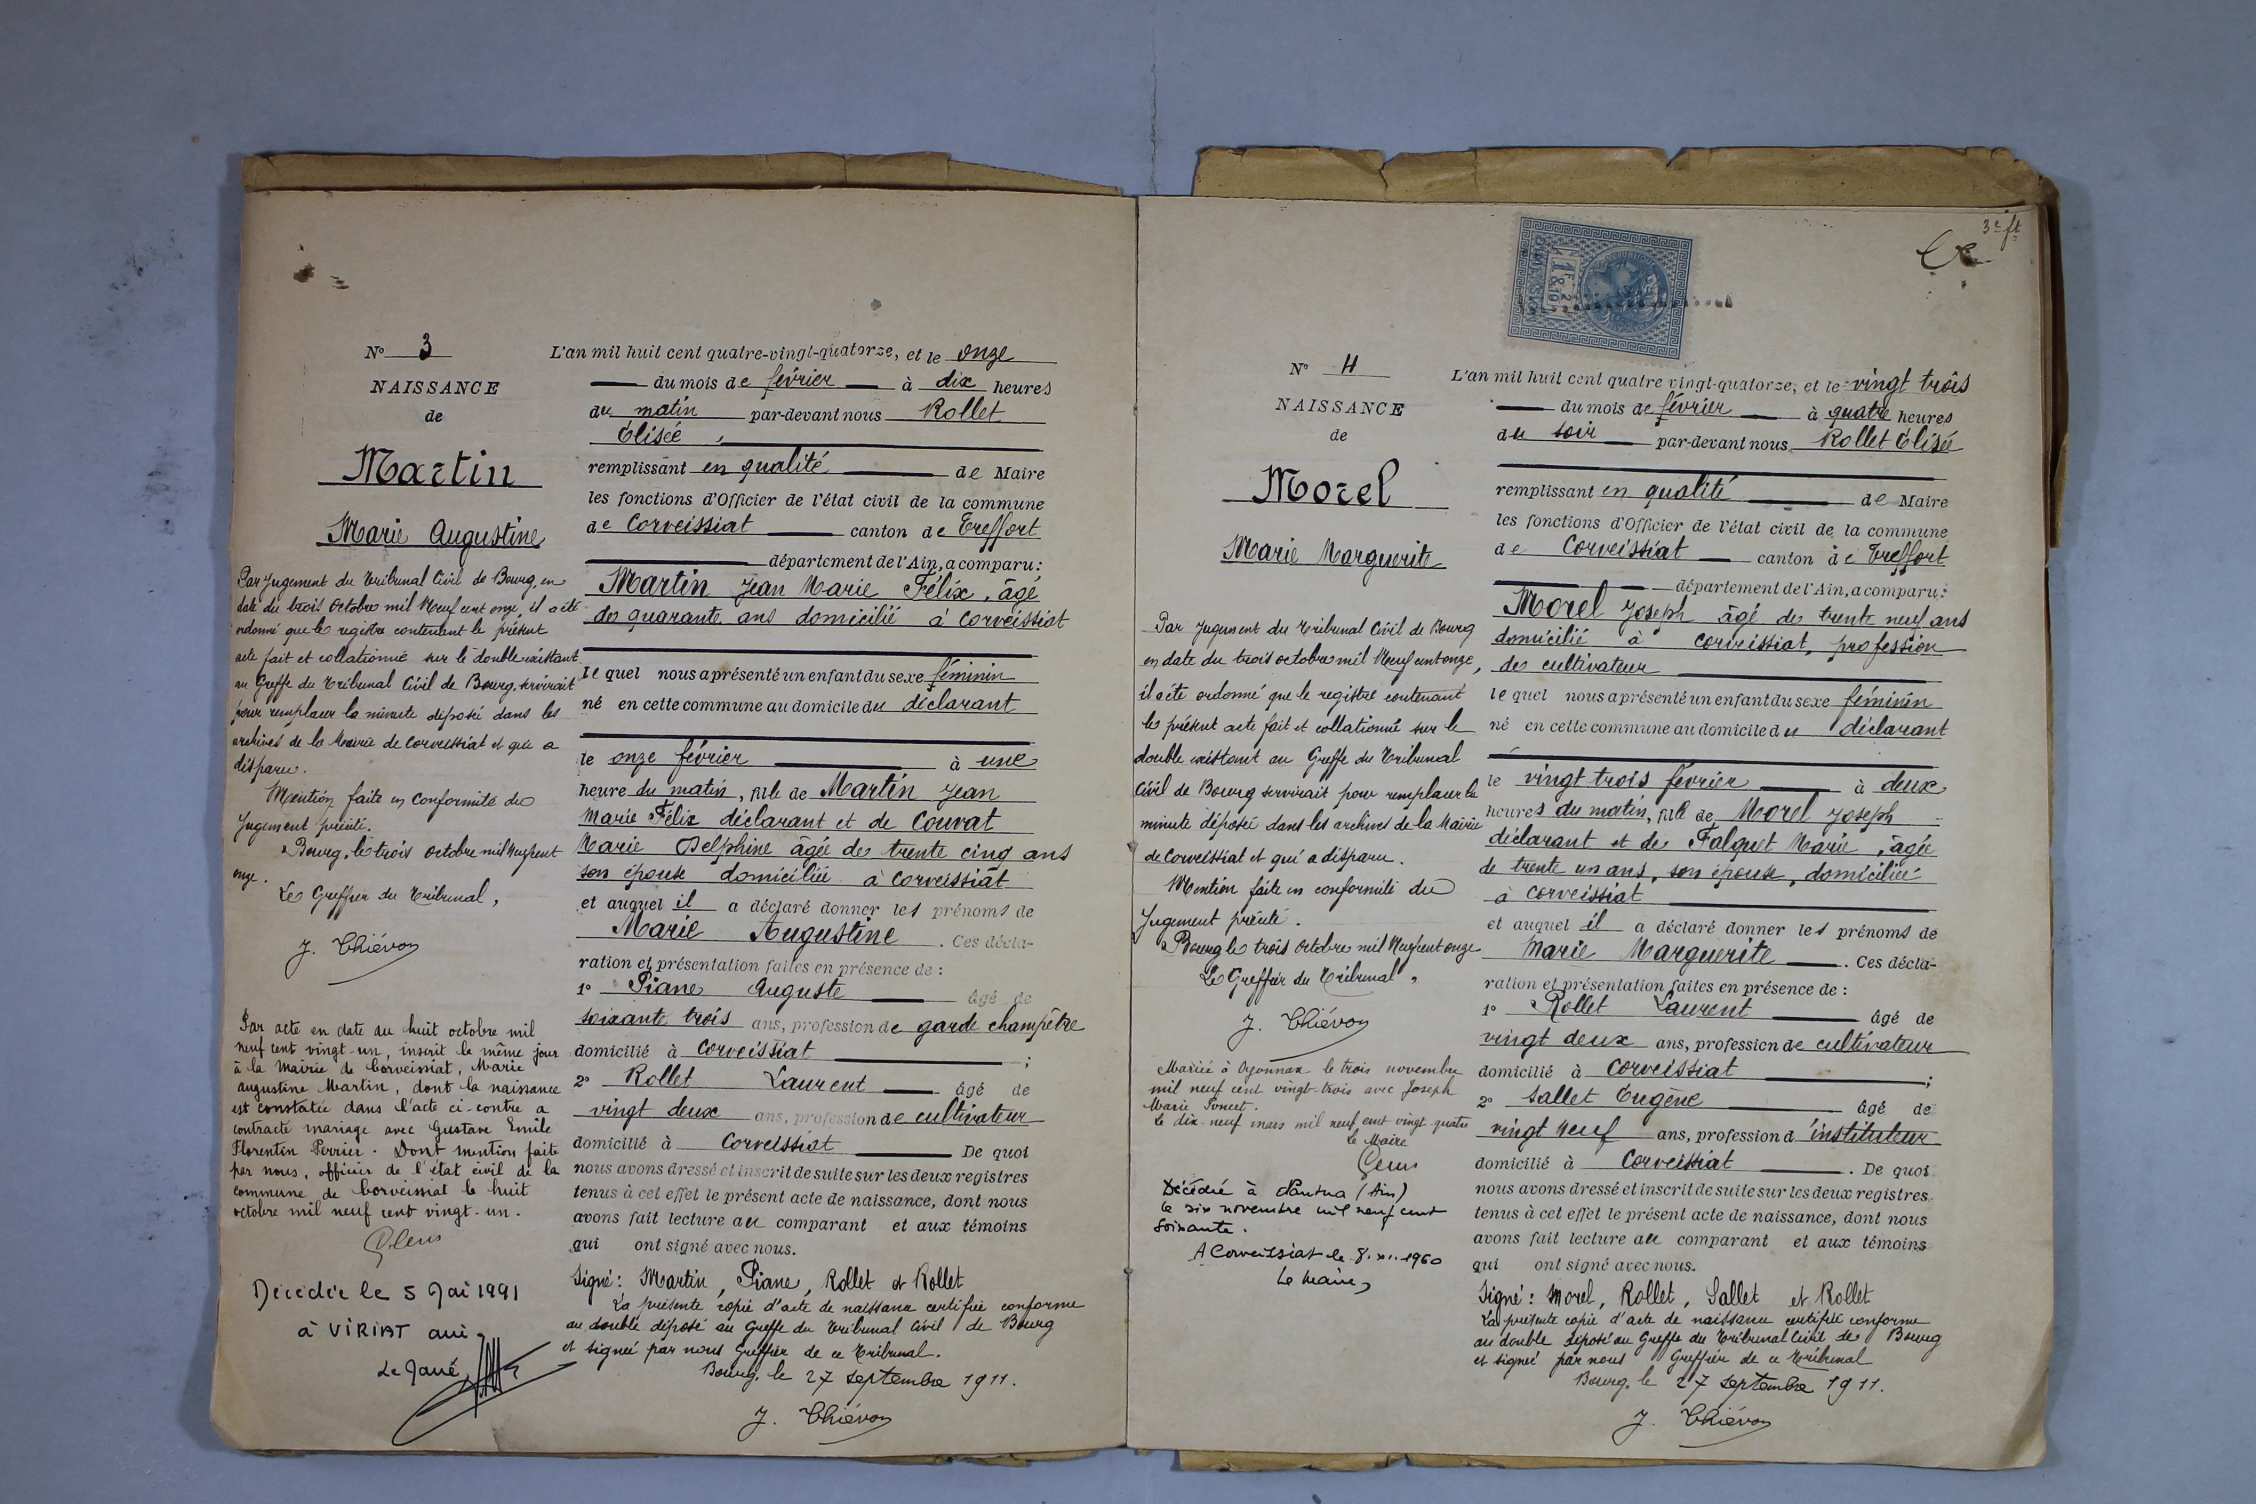 N° 3
NAISSANCE
de
Martin
Marie Augustine
Par Jugement du Tribunal Civil de Bourg, en
date du trois Octobre mil Neuf cent onze, il a été
ordonné que le registre contenant le présent
acte fait et collationné sur le double existant
au Greffe du Tribunal Civil de Bourg, servirait
pour remplacer la minute déposée dans les
archives de la Mairie de Corveissiat et qui a
disparu.
Mention faite en conformité du
Jugement précité.
Bourg, le trois octobre mil Neuf cent
onze.
Le Greffier du Tribunal,
J. Thiévon
Par acte en date du huit octobre mil
neuf cent vingt-un, inscrit le même jour
à la Mairie de Corveissiat, Marie
Augustine Martin, dont la naissance
est constatée dans l'acte ci-contre a
contracté mariage avec Gustave Emile
Florentin Perrier. Dont mention faite
par nous, officier de l'état civil de la
commune de Corveissiat le huit
octobre mil neuf cent vingt-un.
Décédée le 5 Mai 1991
à VIRIAT
L'an mil huit cent quatre-vingt-quatorze, et le onze
du mois de février à dix heures
du matin par-devant nous Rollet
Élisée,
remplissant en qualité de Maire
les fonctions d'Officier de l'état civil de la commune
de Corveissiat canton de Treffort
département de l'Ain, a comparu:
Martin Jean Marie Félix, âgé
de quarante ans domicilié à Corveissiat
le quel nous a présenté un enfant du sexe féminin
né en cette commune au domicile du déclarant
le onze février à une
heure du matin, fille de Martin Jean
Marie Félix déclarant et de Couvat
Marie Delphine âgée de trente cinq ans
son épouse domiciliée à Corveissiat
et auquel il a déclaré donner les prénoms de
Marie Augustine. Ces décla-
ration et présentation faites en présence de:
1° Piane Auguste âgé de
soixante trois ans, profession de garde champêtre
domicilié à Corveissiat;
2° Rollet Laurent âgé de
vingt deux ans, profession de cultivateur
domicilié à Corveissiat De quoi
nous avons dressé et inscrit de suite sur les deux registres
tenus à cet effet le présent acte de naissance, dont nous
avons fait lecture au comparant et aux témoins
qui ont signé avec nous.
Signé: Martin, Piane, Rollet et Rollet
La présente copie d'acte de naissance certifiée conforme
au double déposé au Greffe du Tribunal Civil de Bourg
et signée par nous Greffier de ce Tribunal.
Bourg, le 27 septembre 1911.
J. Thiévon
3e ft
N° 4
NAISSANCE
de
Morel
Marie Marguerite
Par Jugement du Tribunal Civil de Bourg
en date du trois octobre mil Neuf cent onze,
il a été ordonné que le registre contenant
le présent acte fait et collationné sur le
double existant au Greffe du Tribunal
Civil de Bourg servirait pour remplacer la
minute déposée dans les archives de la Mairie
de Corveissiat et qui a disparu.
Mention faite en conformité du
Jugement précité.
Bourg le trois Octobre mil Neuf cent onze
Le Greffier du Tribunal,
J. Thiévon
Mariée à Oyonnax le trois novembre
mil neuf cent vingt-trois avec Joseph
Marie Poncet.
Le dix-neuf mars mil neuf cent vingt-quatre
Le Maire
Décédée à Nantua (Ain)
le six novembre mil neuf cent
soixante.
A Corveissiat le 8.XI.1960
Le Maire,
L'an mil huit cent quatre vingt-quatorze, et le vingt trois
du mois de février à quatre heures
du soir par-devant nous Rollet Élisée
remplissant en qualité de Maire
les fonctions d'Officier de l'état civil de la commune
de Corveissiat canton de Treffort
département de l'Ain, a comparu:
Morel Joseph âgé de trente neuf ans
domicilié à Corveissiat, profession
de cultivateur
le quel nous a présenté un enfant du sexe féminin
né en cette commune au domicile du déclarant
le vingt trois février à deux
heures du matin, fille de Morel Joseph
déclarant et de Falquet Marie, âgée
de trente un ans, son épouse, domiciliée
à Corveissiat
et auquel il a déclaré donner les prénoms de
Marie Marguerite. Ces décla-
ration et présentation faites en présence de:
1° Rollet Laurent âgé de
vingt deux ans, profession de cultivateur
domicilié à Corveissiat;
2° Sallet Eugène âgé de
vingt neuf ans, profession d'instituteur
domicilié à Corveissiat. De quoi
nous avons dressé et inscrit de suite sur les deux registres
tenus à cet effet le présent acte de naissance, dont nous
avons fait lecture au comparant et aux témoins
qui ont signé avec nous.
Signé: Morel, Rollet, Sallet et Rollet
La présente copie d'acte de naissance certifiée conforme
au double déposé au Greffe du Tribunal Civil de Bourg
et signée par nous Greffier de ce Tribunal
Bourg, le 27 septembre 1911.
J. Thiévon